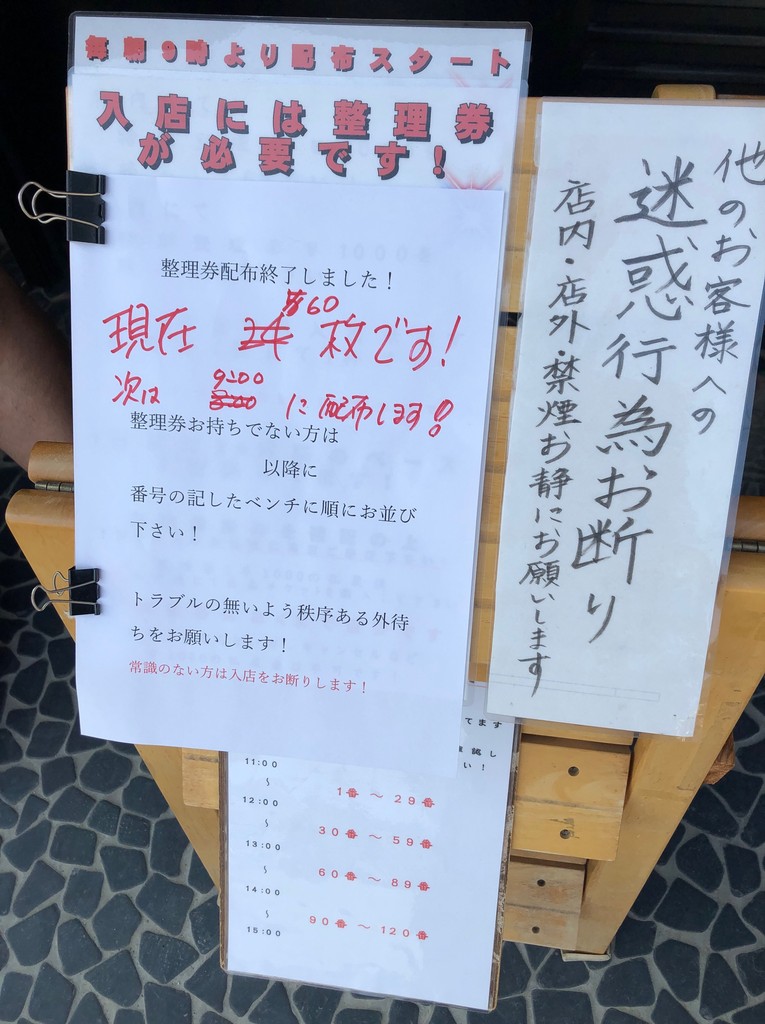 毎朝9時より配布スタート
入店には整理券
が必要です！
整理券配布終了しました！
60
現在 枚です！
次は 9:00 に配布します!!
整理券お持ちでない方は
以降に
番号の記したベンチに順にお並び
下さい！
トラブルの無いよう秩序ある外待
ちをお願いします！
常識のない方は入店をお断りします！
他のお客様への
迷惑行為お断り
店内・店外・禁煙お静にお願いします
てます
い！
11:00
～
12:00
～
13:00
～
14:00
～
15:00
1番 ～ 29番
30番 ～ 59番
60番 ～ 89番
90番 ～ 120番